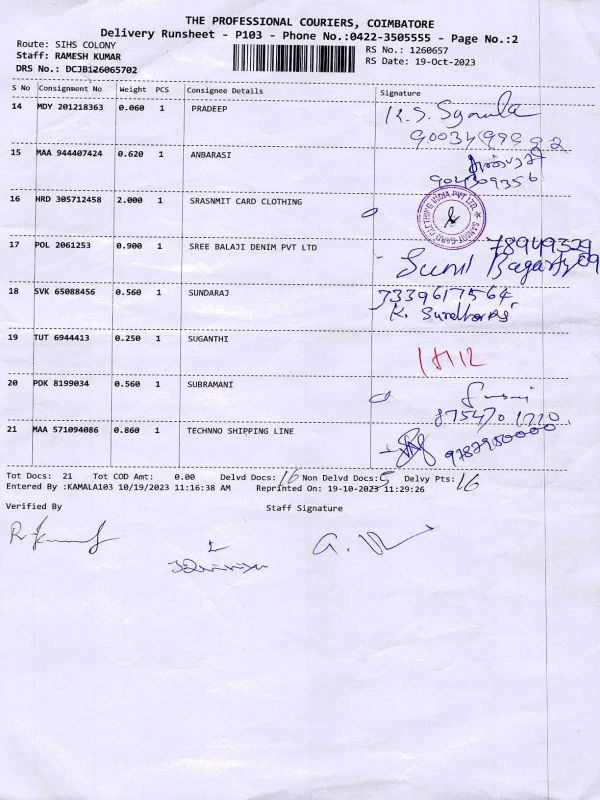 THE PROFESSIONAL COURIERS, COIMBATORE
Delivery Runsheet - P103 - Phone No.:0422-3505555 - Page No.:2
Route: SIHS COLONY
RS No.: 1260657
Staff: RAMESH KUMAR
RS Date: 19-Oct-2023
DRS No.: DCJB126065702
S No Consignment No Weight PCS Consignee Details Signature
14 MDY 201218363 0.060 1 PRADEEP
15 MAA 944407424 0.620 1 ANBARASI
904309356
16 HRD 305712458 2.000 1 SRASNMIT CARD CLOTHING
17 POL 2061253 0.900 1 SREE BALAJI DENIM PVT LTD
Sunil
18 SVK 65088456 0.560 1 SUNDARAJ 7339617564
19 TUT 6944413 0.250 1 SUGANTHI
20 PDK 8199034 0.560 1 SUBRAMANI
21 MAA 571094086 0.860 1 TECHNNO SHIPPING LINE
Tot Docs: 21 Tot COD Amt: 0.00 Delvd Docs: 16 Non Delvd Docs: 5 Delvy Pts: 16
Entered By :KAMALA103 10/19/2023 11:16:38 AM Reprinted On: 19-10-2023 11:29:26
Verified By Staff Signature